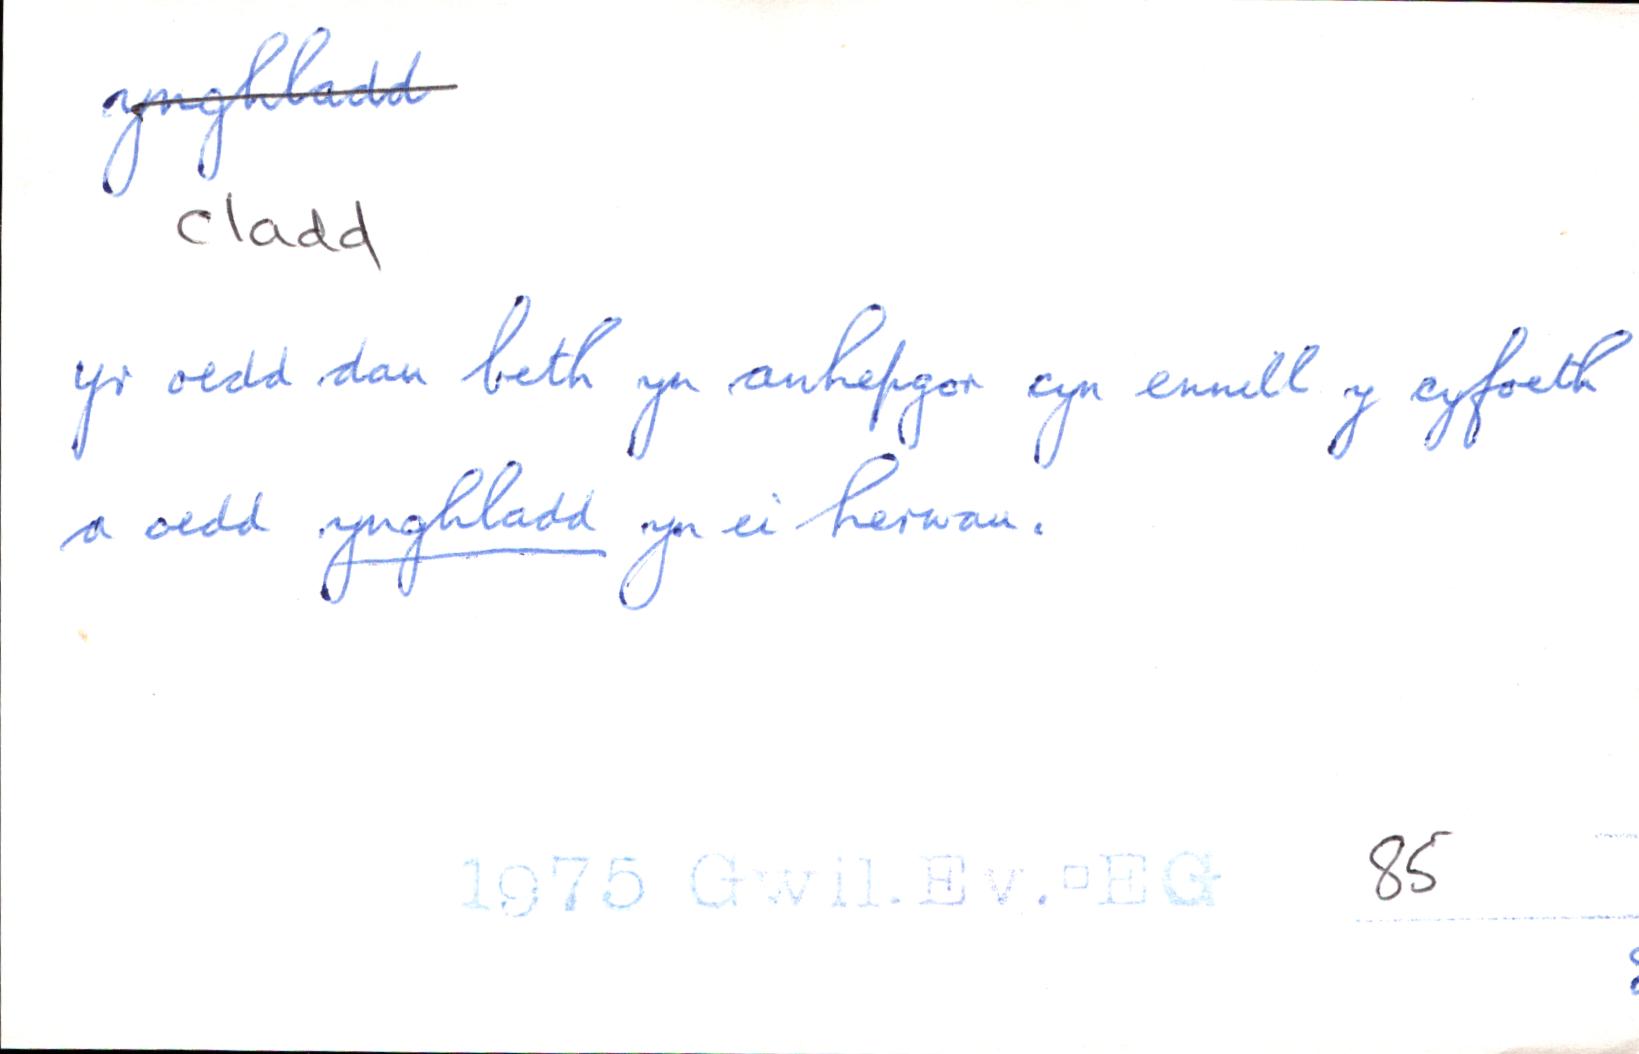 ynghladd
cladd
yr oedd dau beth yn anhepgor cyn ennill y cyfoeth
a oedd ynghladd yn ei herwau.
1975 Gwil.Ev.-EG 85